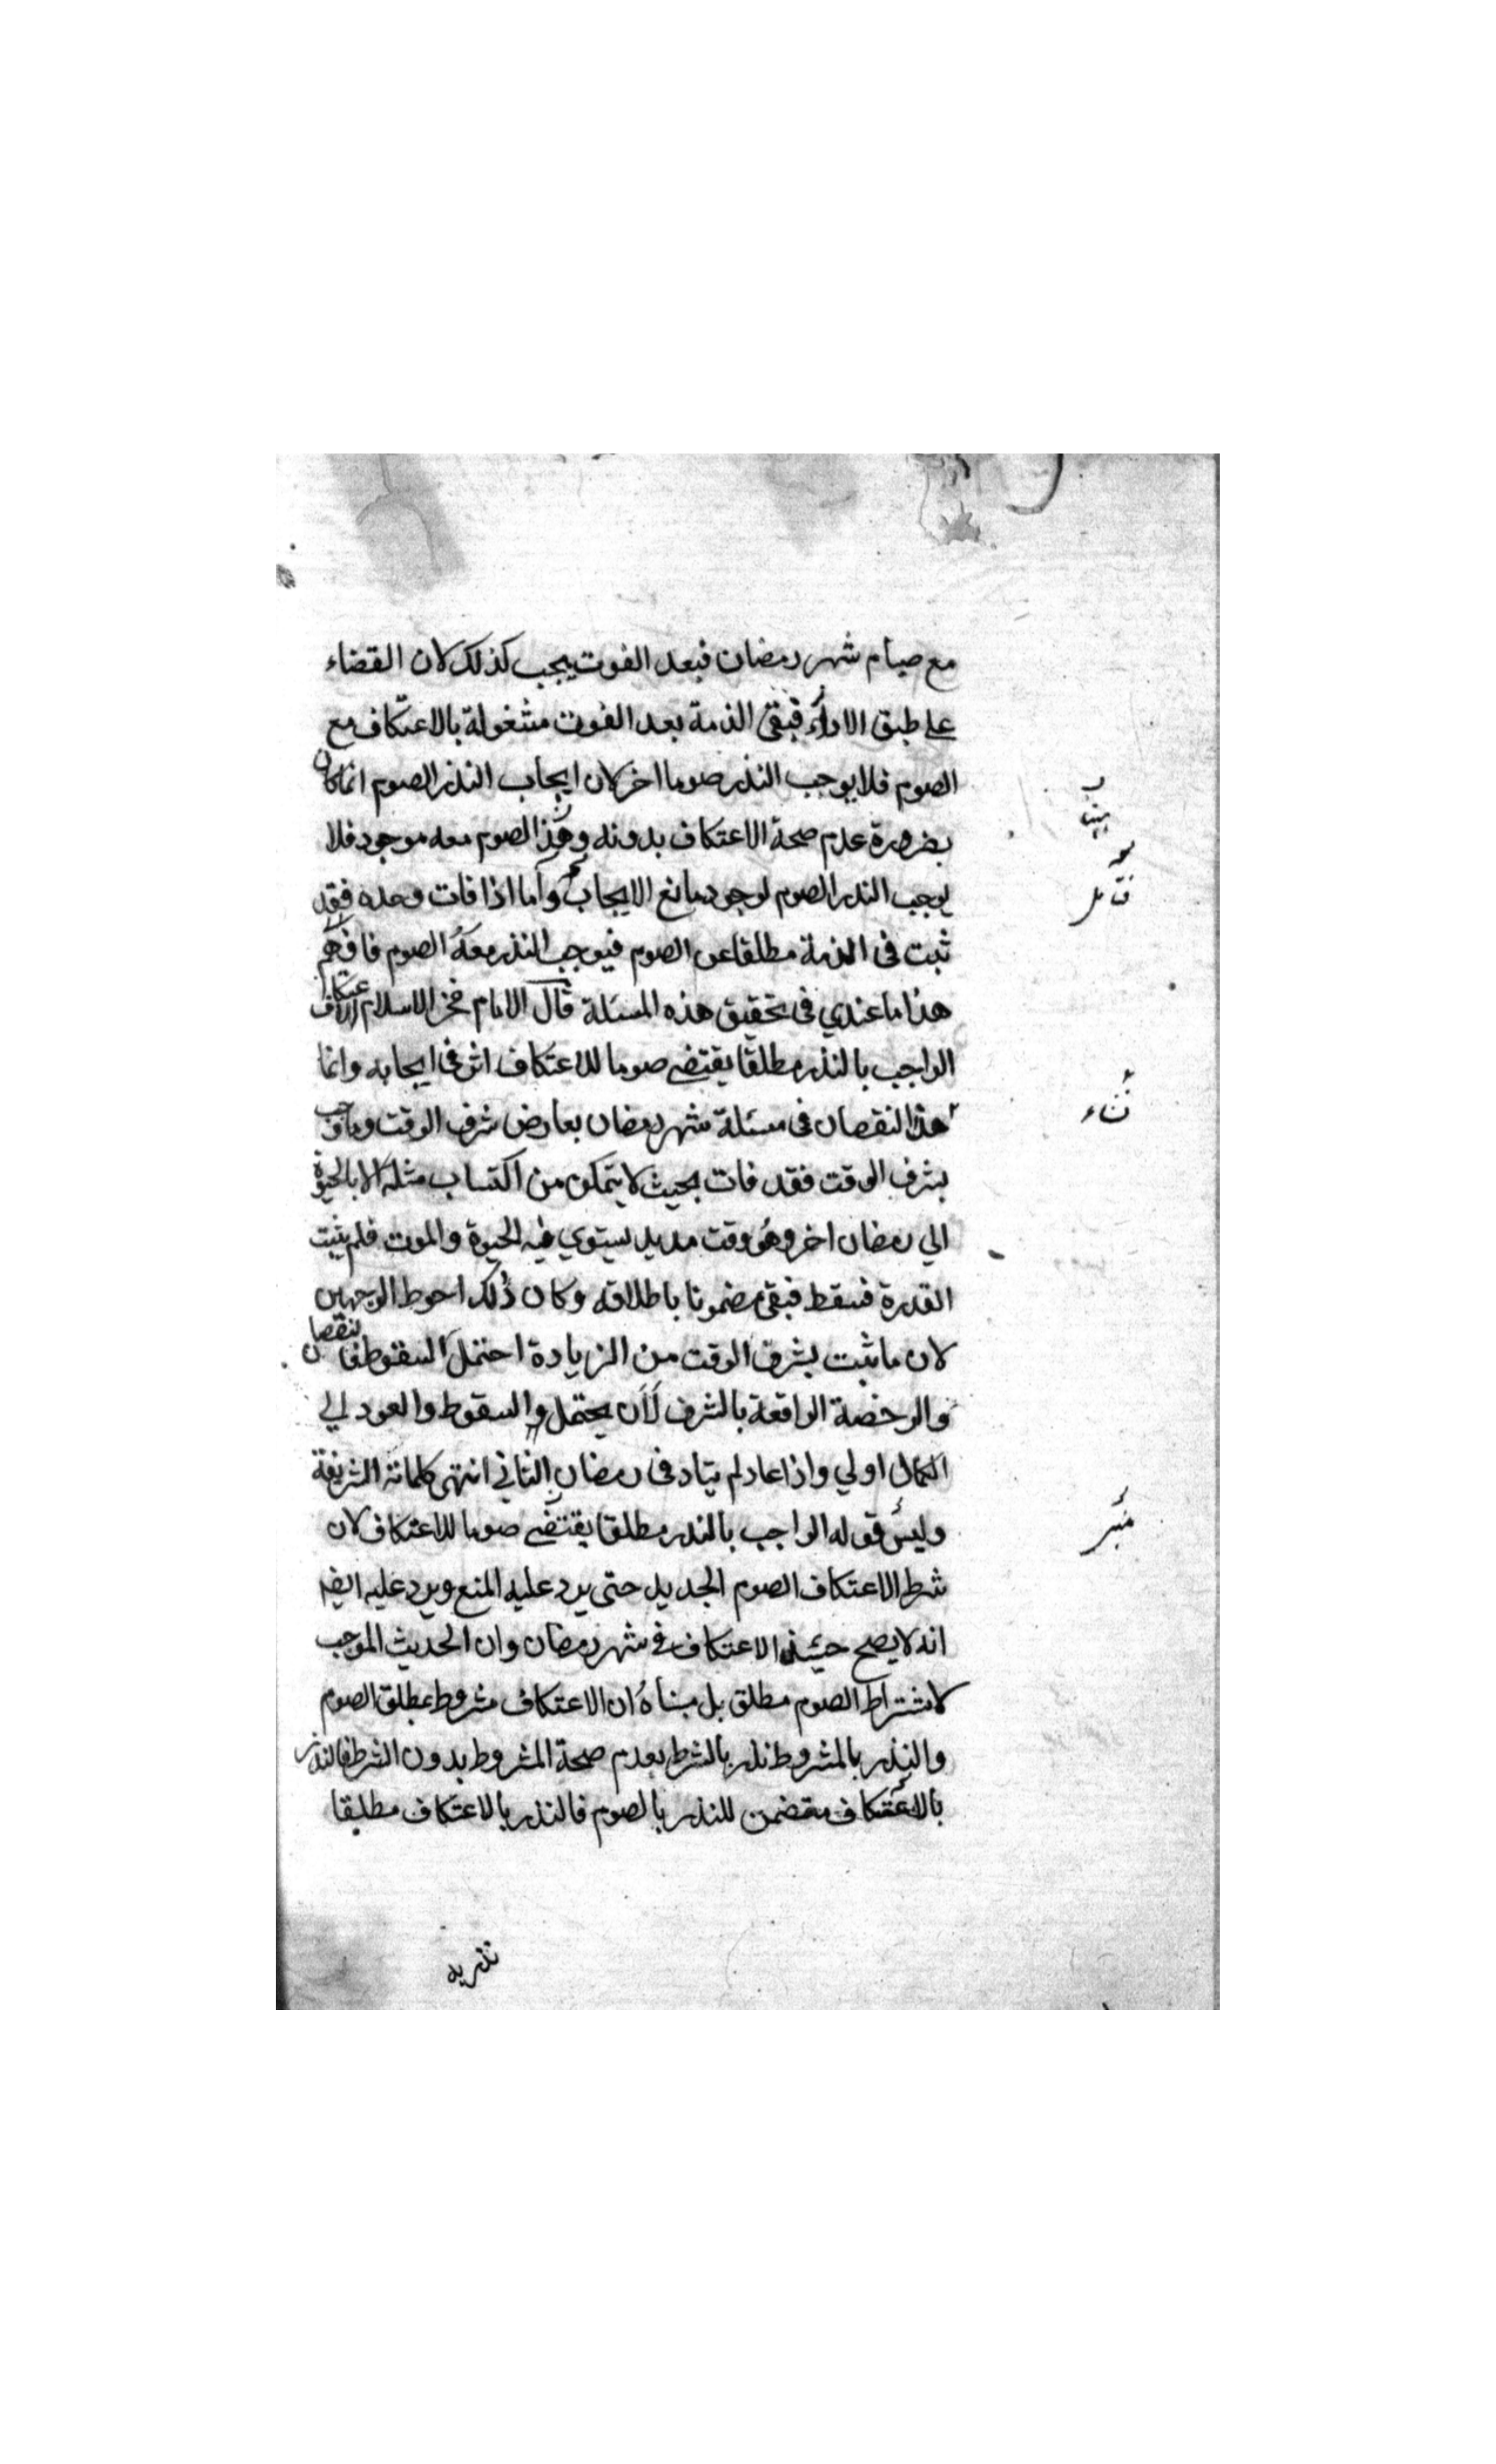 مع صيام شهر رمضان فبعد الفوت يجب كذلك لان القضاء
على طبق الاداء فبقى الذمة بعد الفوت مشغولة بالاعتكاف مع
الصوم فلا يوجب النذر صوما اخر لان ايجاب النذر الصوم انما كان
بضرورة عدم صحة الاعتكاف بدونه وهذا الصوم معه موجود فلا
يوجب النذر الصوم لوجود مانع الايجاب واما اذا فات وحده فقد
ثبت فى الذمة مطلقا عن الصوم فيوجب النذر معه الصوم فافهم
هذا ما عندي فى تحقيق هذه المسئلة قال الامام فخر الاسلام الاعتكاف
الواجب بالنذر مطلقا يقتضي صوما للاعتكاف اثر فى ايجابه وانما
هذا النقصان فى مسئلة شهر رمضان بعارض شرف الوقت وما وجب
بشرف الوقت فقد فات بحيث لا يتمكن من اكتساب مثله الا بالحيوة
الي رمضان اخر وهو وقت مديد يستوي فيه الحيوة والموت فلم يثبت
القدرة فسقط فبقى مضمونا باطلاقه وكان ذلك احوط الوجهين
لان ما ثبت بشرف الوقت من الزيادة احتمل السقوط فالنقصان
والرخصة الواقعة بالشرف لان يحتمل السقوط والعود الي
الكمال اولي واذا عاد لم يتاد فى رمضان الثاني انتهى كلماته الشريفة
وليس قوله الواجب بالنذر مطلقا يقتضي صوما للاعتكاف لان
شرط الاعتكاف الصوم الجديد حتى يرد عليه المنع ويرد عليه ايضا
انه لا يصح حينئذ الاعتكاف في شهر رمضان وان الحديث الموجب
لاشتراط الصوم مطلق بل مبناه ان الاعتكاف مشروط بمطلق الصوم
والنذر بالمشروط نذر بالشرط بعدم صحة المشروط بدون الشرط فالنذر
بالاعتكاف متضمن للنذر بالصوم فالنذر بالاعتكاف مطلقا